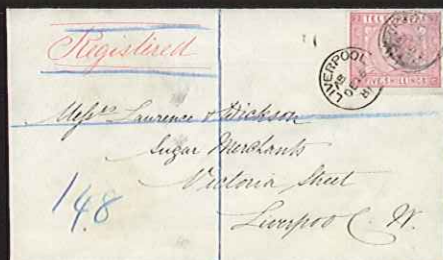 Registered
TELE
FIVE SHILLINGS
LIVERPOOL
DE
81
Messrs Laurence & Dickson
Sugar Merchants
Victoria Street
Liverpool C. W.
148